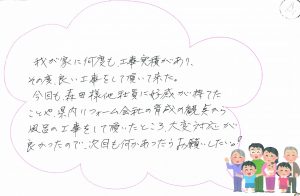 我が家に何度も工事実積があり、
その度良い工事をして頂いて来た。
今回も森田様他社員に好感が持てた
ことや、県内リフォーム会社の育成の観点から
風呂の工事をして頂いたところ、大変対応が
良かったので、次回も何かあったらお願いしたい。